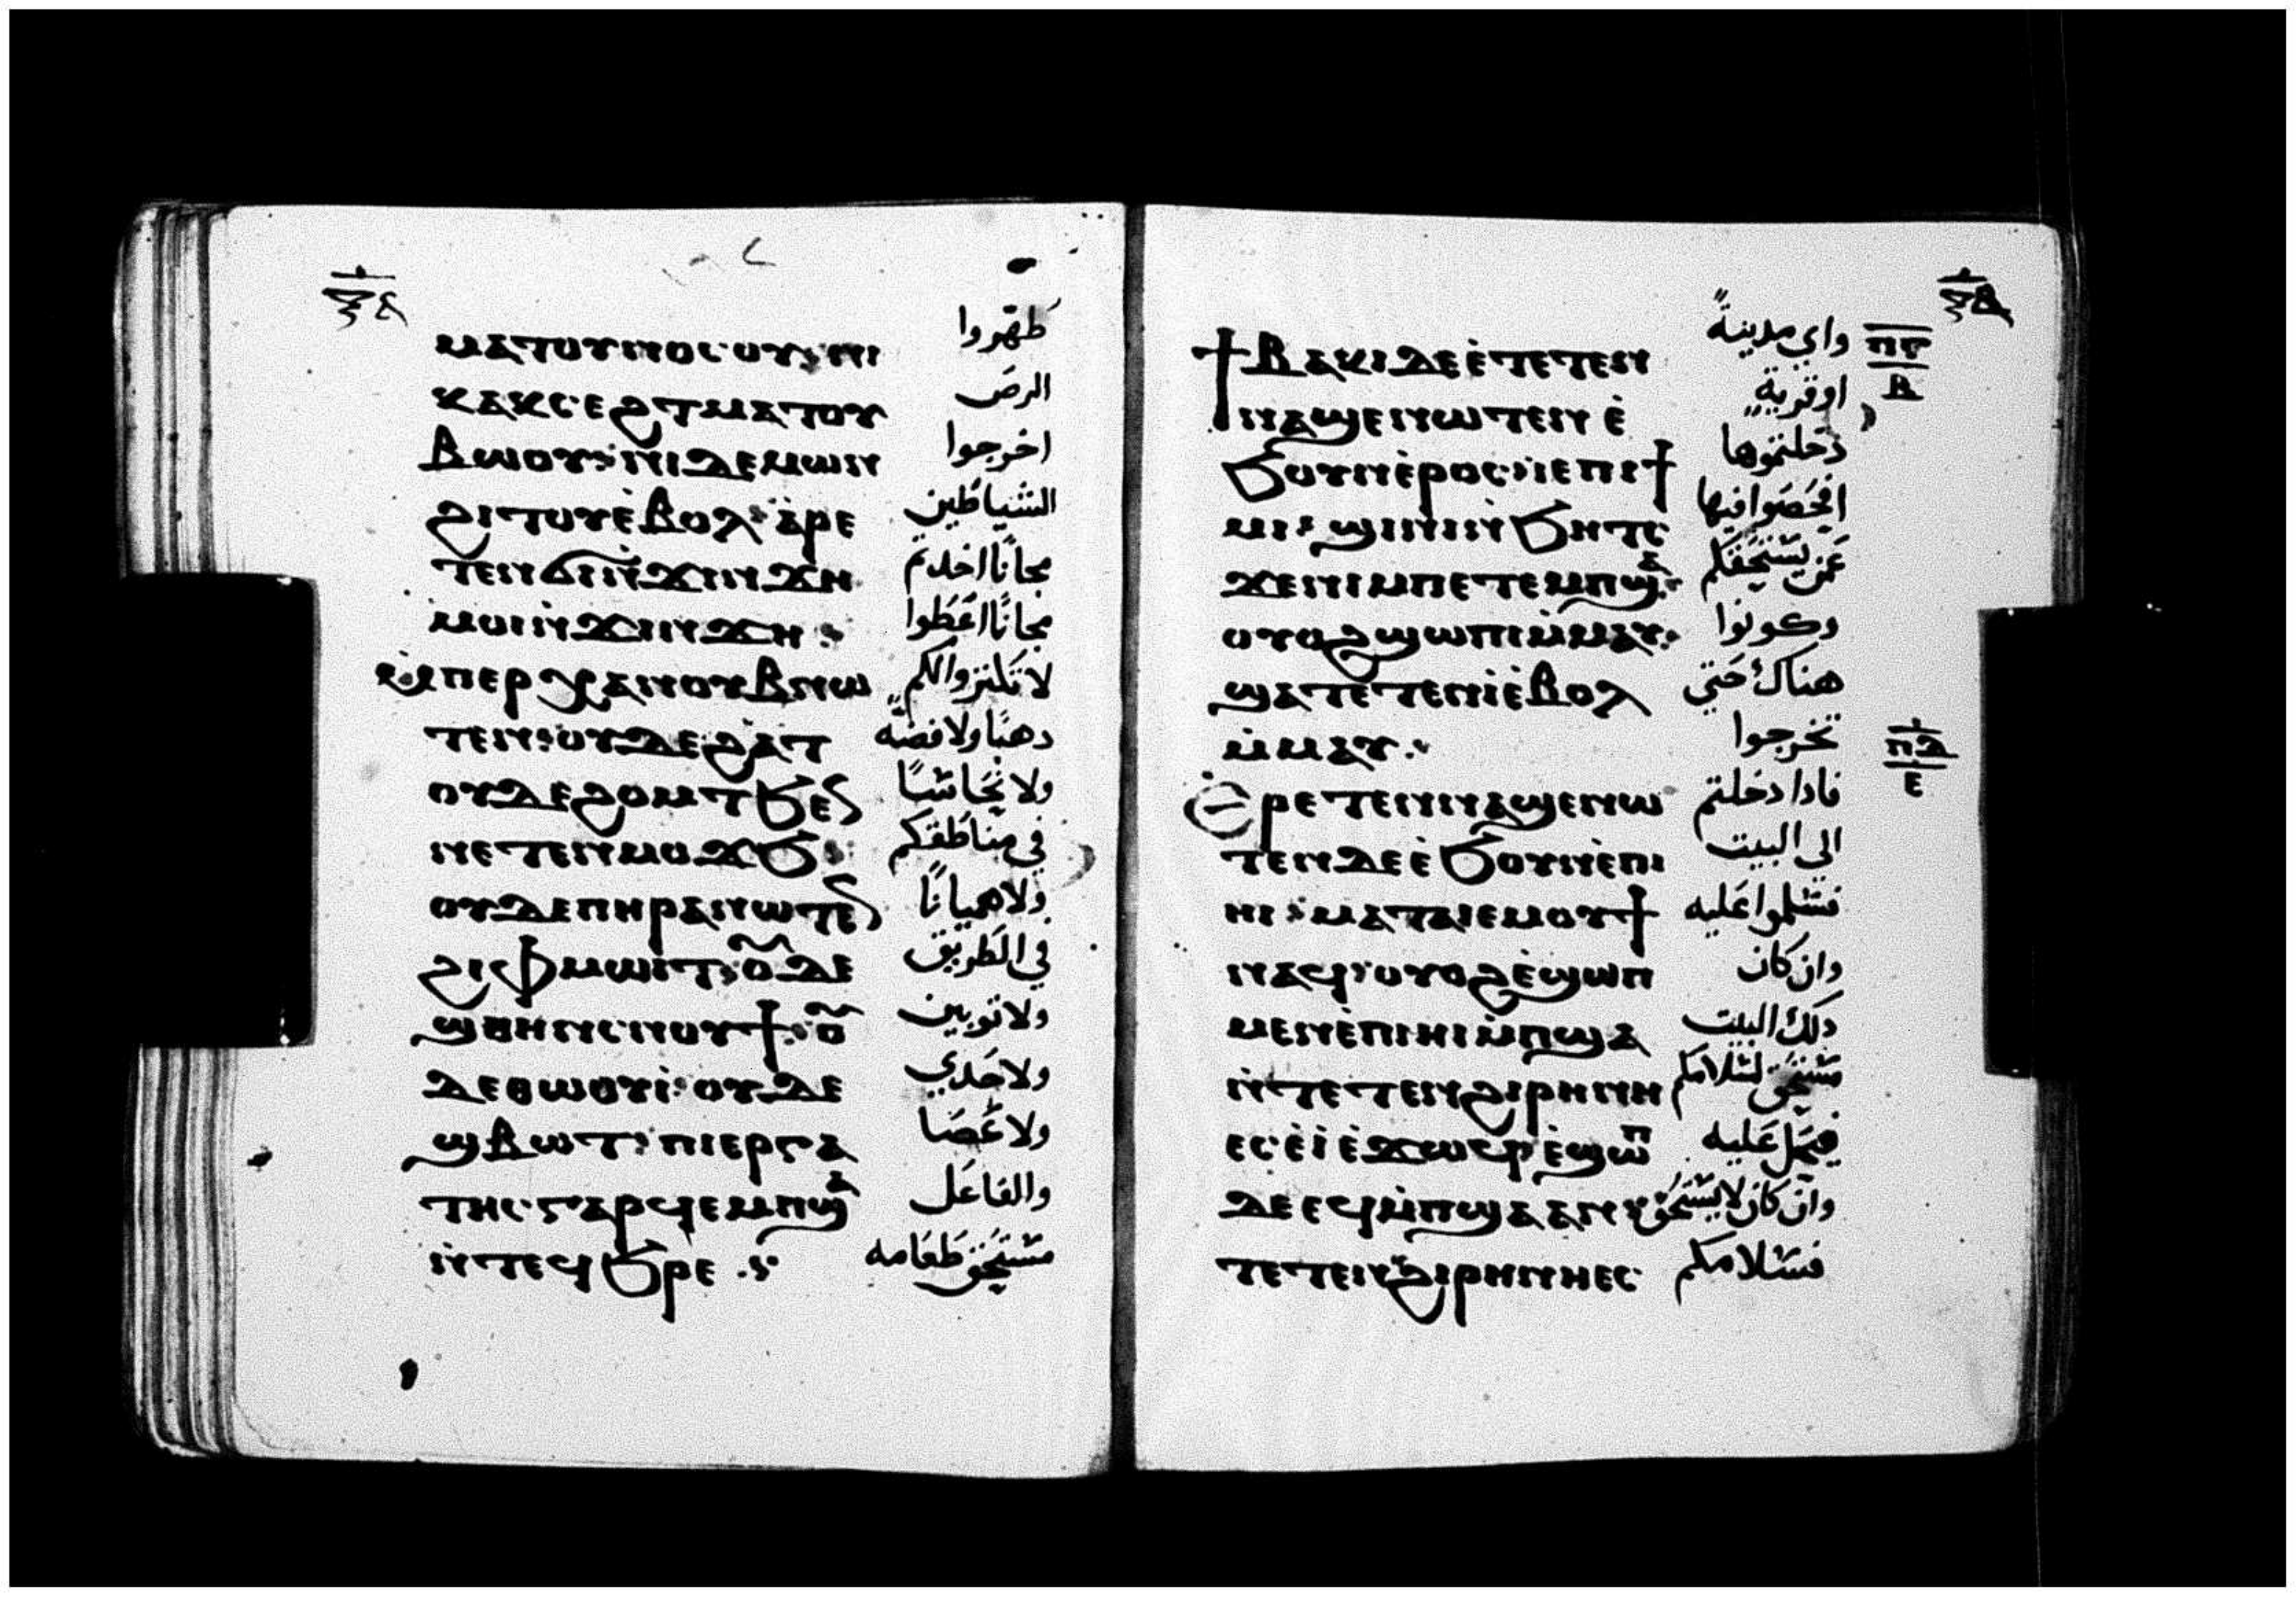 ⲙⲁⲧⲟⲩⲛⲟⲥⲟⲩ: ⲛⲓ طهروا
ⲕⲁⲕⲥⲉϩⲧ ⲙⲁⲧⲟⲩ البرص
ⲃⲱⲟⲩ: ⲛⲓⲇⲉⲙⲱⲛ اخرجوا
ϩⲓⲧⲟⲩ ⲉ̇ⲃⲟⲗ: ⲁ̇ⲣⲉ الشياطين
ⲧⲉⲛϭⲓ ⲛ̇ϫⲓⲛϫⲏ مجانا اخدتم
ⲙⲟⲓ ⲛ̇ϫⲓⲛϫⲏ: مجانا اعطوا
ⲙ̇ⲡⲉⲣⲭⲁ ⲛⲟⲩⲃ ⲛⲱ لا تكنزوا لكم
ⲧⲉⲛ: ⲟⲩⲇⲉ ϩⲁⲧ دهبا ولا فضة
ⲟⲩⲇⲉ ϩⲟⲙⲧ ϧⲉⲛ ولا نحاسا
ⲛⲉⲧⲉⲛⲙⲟϫϧ: في مناطقكم
ⲟⲩⲇⲉ ⲡⲏⲣⲁ ⲛⲱⲧⲉⲛ ولا هميانا
ϩⲓ ⲫⲙⲱⲓⲧ: ⲟⲩⲇⲉ في الطريق
ϣⲑⲏⲛ ⲥⲛⲟⲩϯ: ⲟⲩ ولا توبين
ⲇⲉ ⲑⲱⲟⲩⲓ̇: ⲟⲩⲇⲉ ولا حدي
ϣⲃⲱⲧ: ⲡⲓⲉⲣⲅⲁ ولا عصا
ⲧⲏⲥ ⲅⲁⲣ ϥⲉⲙⲡϣⲁ والفاعل
ⲛ̇ⲧⲉϥϧⲣⲉ. مستحق طعامه
ϯⲃⲁⲕⲓ ⲇⲉ ⲉ̇ⲧⲉⲧⲉⲛ واي مدينة
ⲛⲁϣⲉⲛⲱⲧⲉⲛ ⲉ̇ اوقرية
ϧⲟⲩⲛ ⲉ̇ⲣⲟⲥ: ⲓⲉ ⲡⲓϯ دخلتموها
ⲙⲓ: ϣⲓⲛⲓ ⲛ̇ϧⲏⲧⲥ افحصوا فيها
ϫⲉ ⲛⲓⲙ ⲡⲉⲧⲉⲙⲡϣⲁ عمن يستحقكم
ⲟⲩⲟϩ ϣⲱⲡⲓ ⲙ̇ⲙⲁⲩ. وكونوا
ϣⲁⲧⲉⲧⲉⲛⲓ̇ ⲉ̇ⲃⲟⲗ هناك حتي
ⲙ̇ⲙⲁⲩ. تخرجوا
ⲉⲣⲉⲧⲉⲛⲛⲁϣⲉⲛⲱ فادا دخلتم
ⲧⲉⲛ ⲇⲉ ⲉ̇ϧⲟⲩⲛ ⲉ̇ⲡⲓ الي البيت
ⲏⲓ: ⲙⲁⲧⲁⲓⲉⲙⲟⲩϯ فسلموا عليه
ⲛⲁϥ: ⲟⲩⲟϩ ⲉ̇ϣⲱⲡ وان كان
ⲙⲉⲛ ⲉ̇ⲡⲓⲏⲓ ⲙ̇ⲡϣⲁ دلك البيت
ⲛ̇ⲧⲉⲧⲉⲛϩⲓⲣⲏⲛⲏ مستحق لسلامكم
ⲉⲥⲉ̇ⲓ̇ ⲉ̇ϫⲱϥ: ⲉ̇ϣⲱⲡ فيحل عليه
ⲇⲉ ⲉϥⲙ̇ⲡϣⲁ ⲁⲛ وان كان لا يستحق
ⲧⲉⲧⲉⲛϩⲓⲣⲏⲛⲏ ⲉⲥ فسلامكم